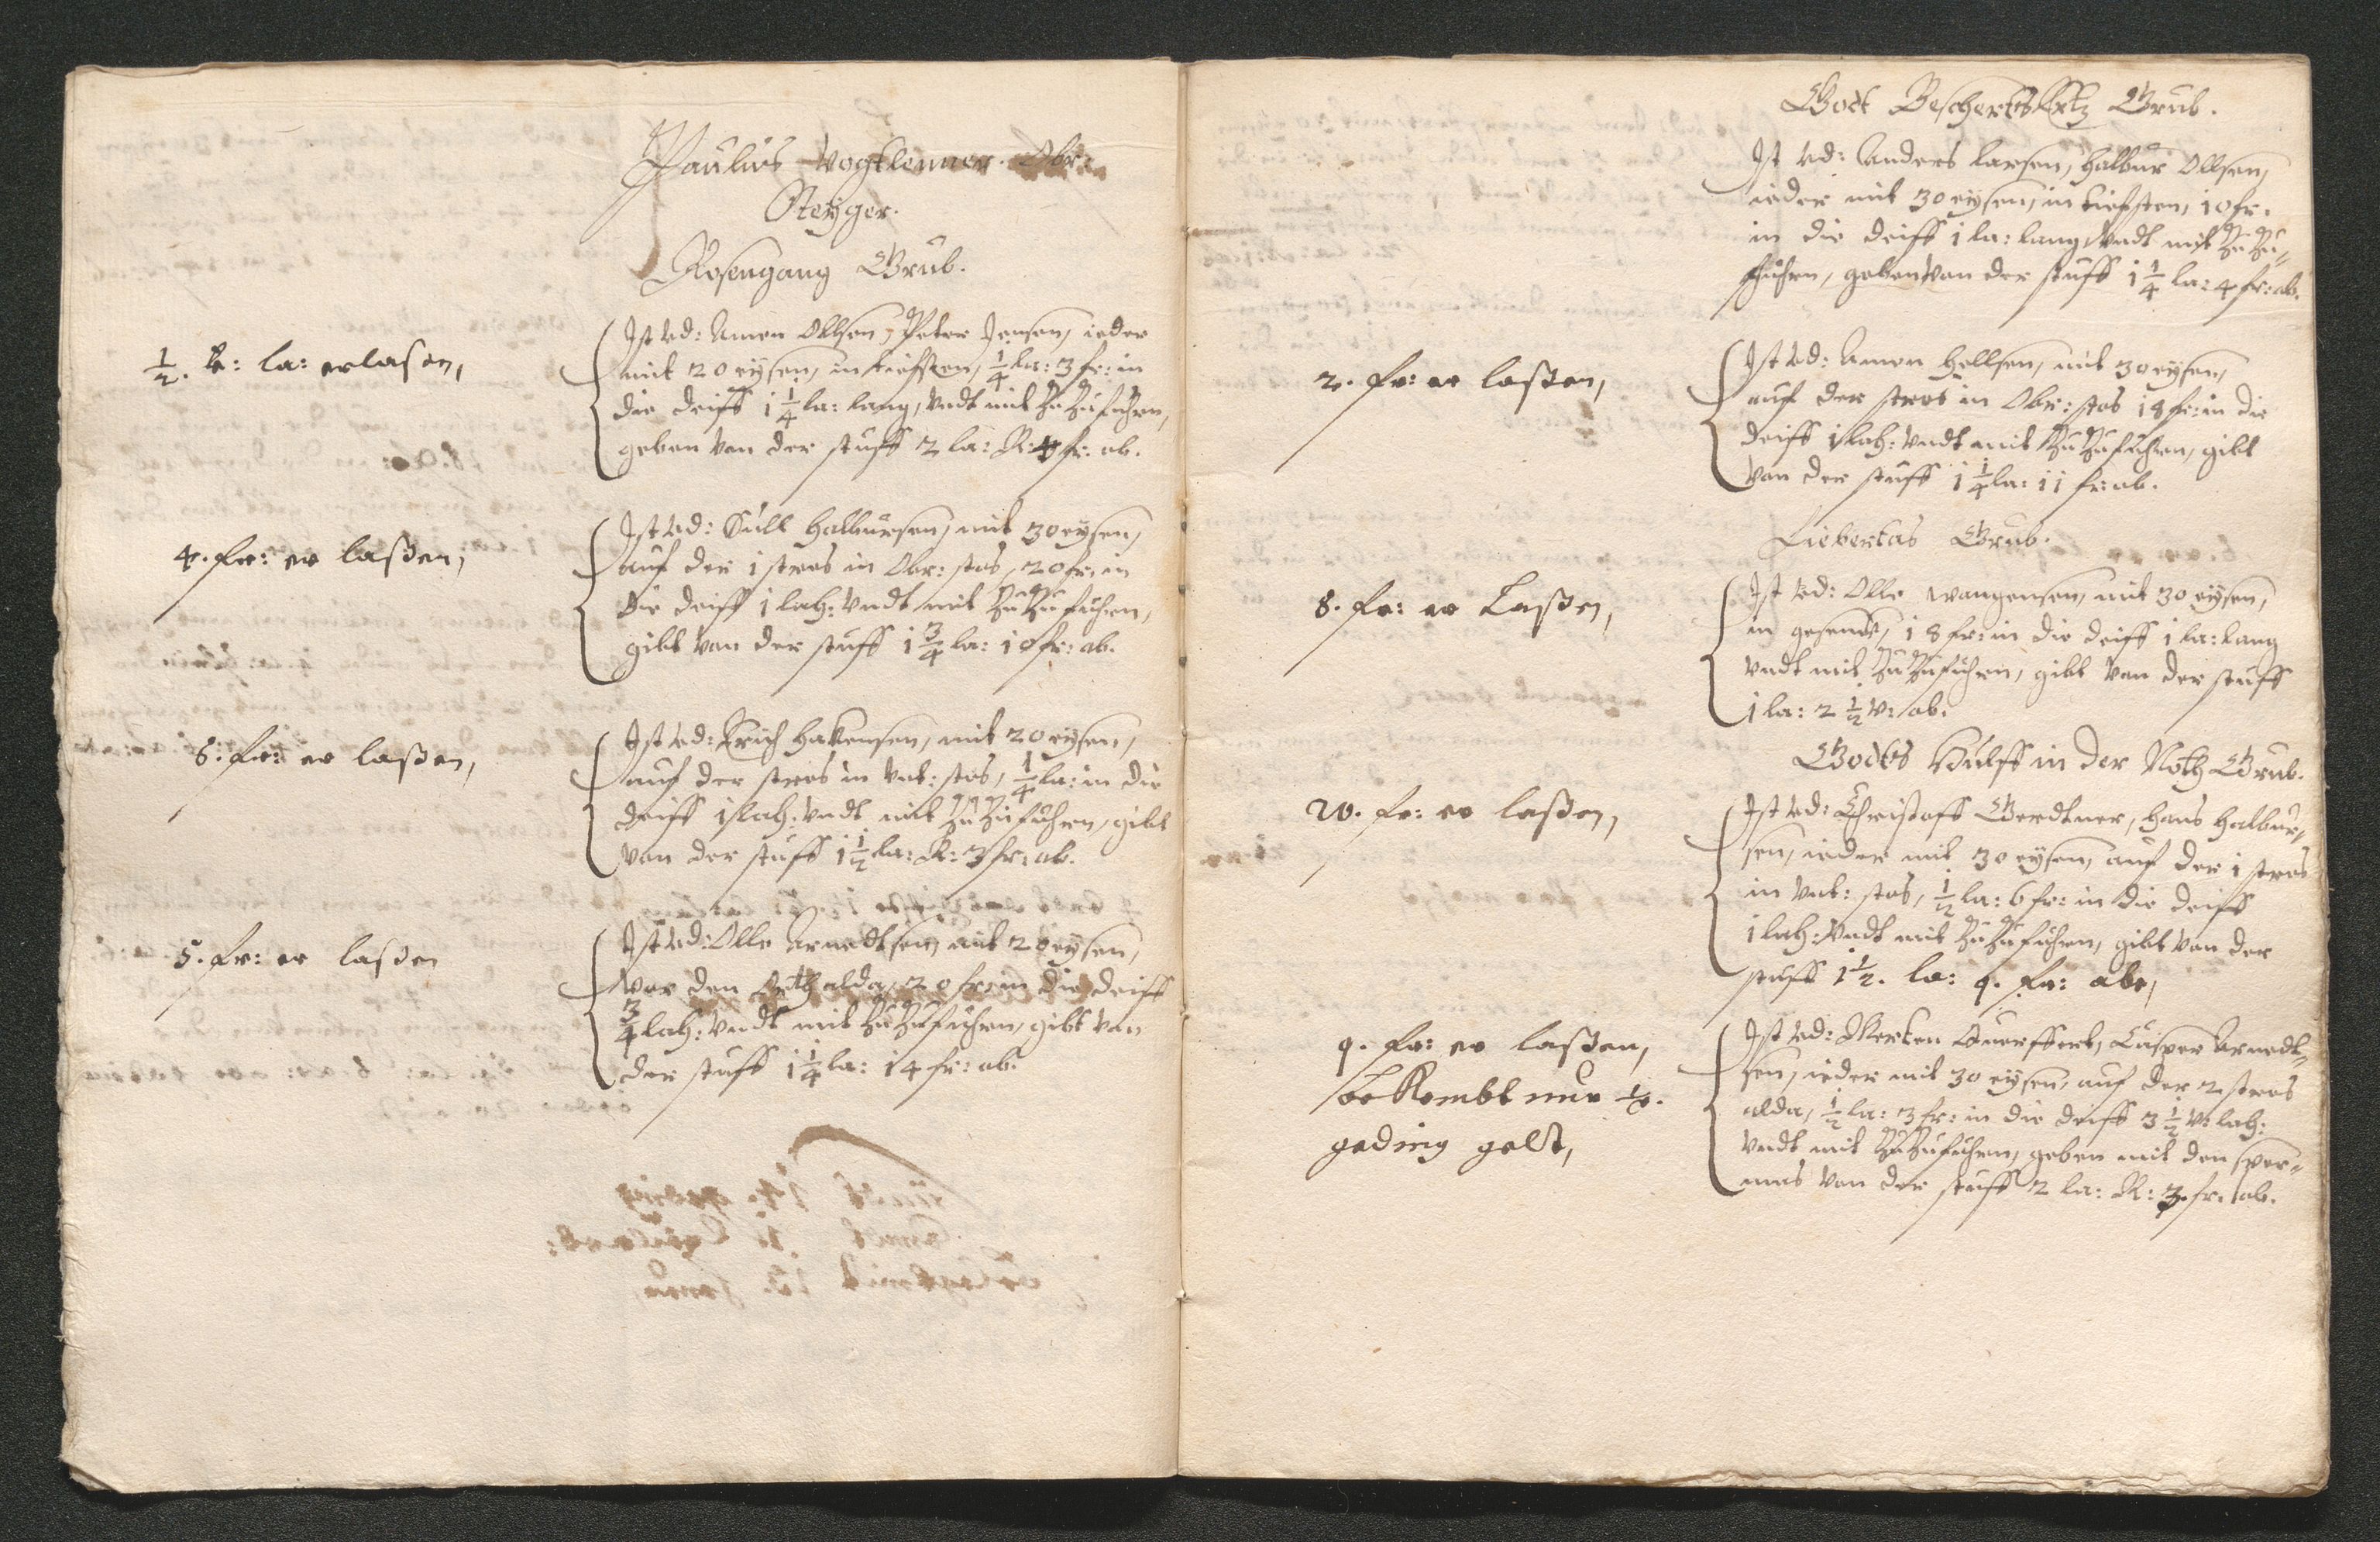 Paulus Vogtlenner. Obr:
Steyger.
Rosengang Grub.
1/2. v: la: erlasen,
Ist vd: Amon Ollsen, Peter Jensen, ieder
mit 20 eysen, in tiefsten, 1/4 la: 3 fr: in
die deiff 1 1/4 la: lang, vndt mit Zu Zufuhren,
geben von der stuff 2 la: R: 4 fr. ab.
4. fr: er laßen,
Ist vd: Sull Halbursen, mit 30 eysen,
auf der 1 stros in Obr: stos, 20 fr. in
die deiff 1 lah: vndt mit Zu Zufuhren,
gibt von der stuff 1 3/4 la: 10 fr: ab.
8: fr: er laßen,
Ist vd: Erich Hakensen, mit 20 eysen,
auf der stros in Vnt: stos, 1/4 la: in die
deiff 1 lah: vndt mit Zu Zufuhren, gibt
von der stuff 1 1/2 la: R: 3 fr: ab.
5. fr: er laßen
Ist vd: Olle Arnedtsen, mit 20 eysen,
vor den Orth alda, 20 fr: in die deiff
3/4 lah: vndt mit Zu Zufuhren, gibt von
der stuff 1 1/4 la: 14 fr: ab.
Gott Beschertes Ertz Grub.
Ist vd: Anders Larsen, Halbur Ollsen,
ieder mit 30 eysen, in tiefsten, 10 fr.
in die deiff 1 la: lang, vndt mit Zu Zu-
fuhren, geben von der stuff 1 1/4 la: 4 fr: ab.
2. fr: er laßen,
Ist vd: Amon Hellsen, mit 30 eysen,
auf der stros in Obr: stos 18 fr: in die
deiff 1 lah: vndt mit Zu Zufuhren, gibt
von der stuff 1 1/4 la: 11 fr: ab.
Liebertas Grub.
8. fr: er Laßen,
Ist vd: Olle Wangensen, mit 30 eysen,
in gesenck, 18 fr: in die deiff 1 la: lang
vndt mit Zu Zufuhren, gibt von der stuff
1 la: 2 1/2 v: ab.
Gottes Hulff in der Noth Grub.
10. fr: er laßen,
Ist vd: Christoff Gerdtner, Hans Halbur-
sen, ieder mit 30 eysen, auf der 1 stros
in Vnt: stos, 1/2 la: 6 fr: in die deiff
1 lah: vndt mit Zu Zufuhren, gibt von der
stuff 1 1/2. la: 9. fr: abe,
9. fr: er laßen,
bekombt nur 1/2.
geding gelt,
Ist vd: Merten Querffert, Casper Arnedt-
sen, ieder mit 30 eysen, auf der 2 stros
alda, 1/2 la: 3 fr: in die deiff 3 1/2 v: lah:
vndt mit Zu Zufuhren, geben mit den sper-
mas von der stuff 2 la: R: 3. fr. ab.